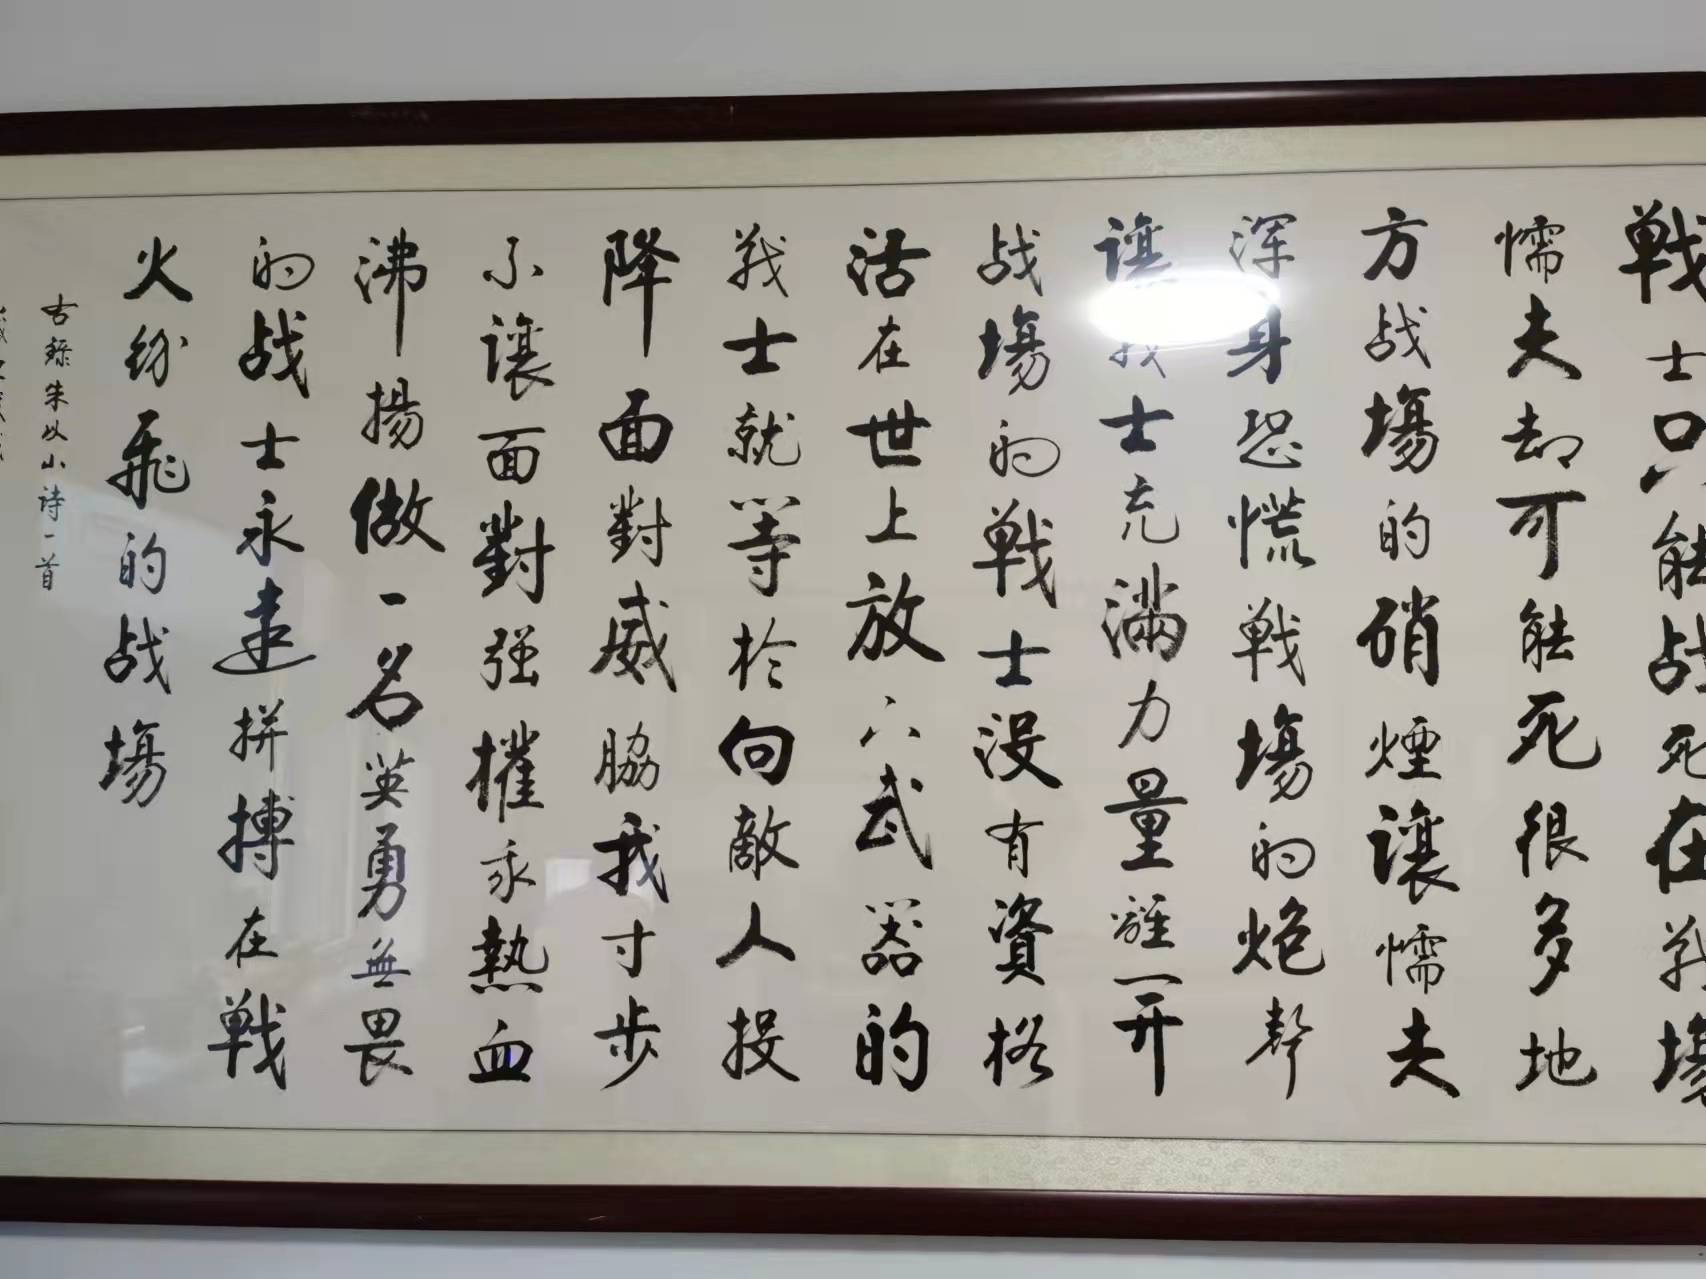 戰士只能战死在戰場
懦夫却可能死很多地
方战場的硝煙讓懦夫
渾身恐慌戰場的炮聲
讓戰士充滿力量離開
战場的戰士没有資格
活在世上放下武器的
戰士就等於向敵人投
降面對威脇我寸步
不讓面對强權我熱血
沸揚做一名英勇無畏
的战士永遠拼搏在戰
火紛飛的战場
右録朱以山詩一首